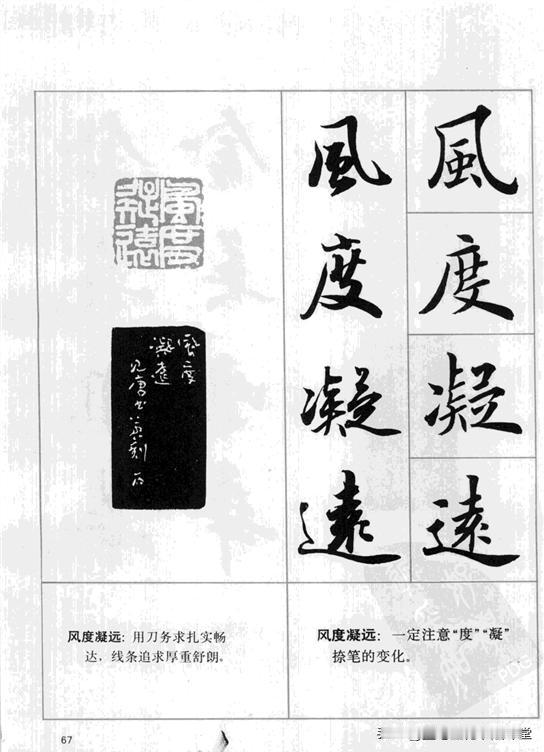 風
度
凝
遠
風
度
凝
遠
風度
凝遠
風度
凝遠
风度凝远：用刀务求扎实畅
达，线条追求厚重舒朗。
风度凝远：一定注意“度”“凝”
捺笔的变化。
67